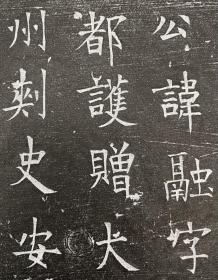 公諱融字
都護贈犬
州刺史安